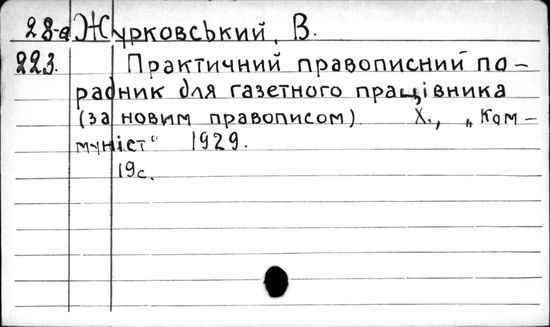 28-а Журковський, В.
223. Практичний правописний по-
радник для газетного працівника
(за новим правописом) Х., „Ком-
муніст“ 1929.
19с.